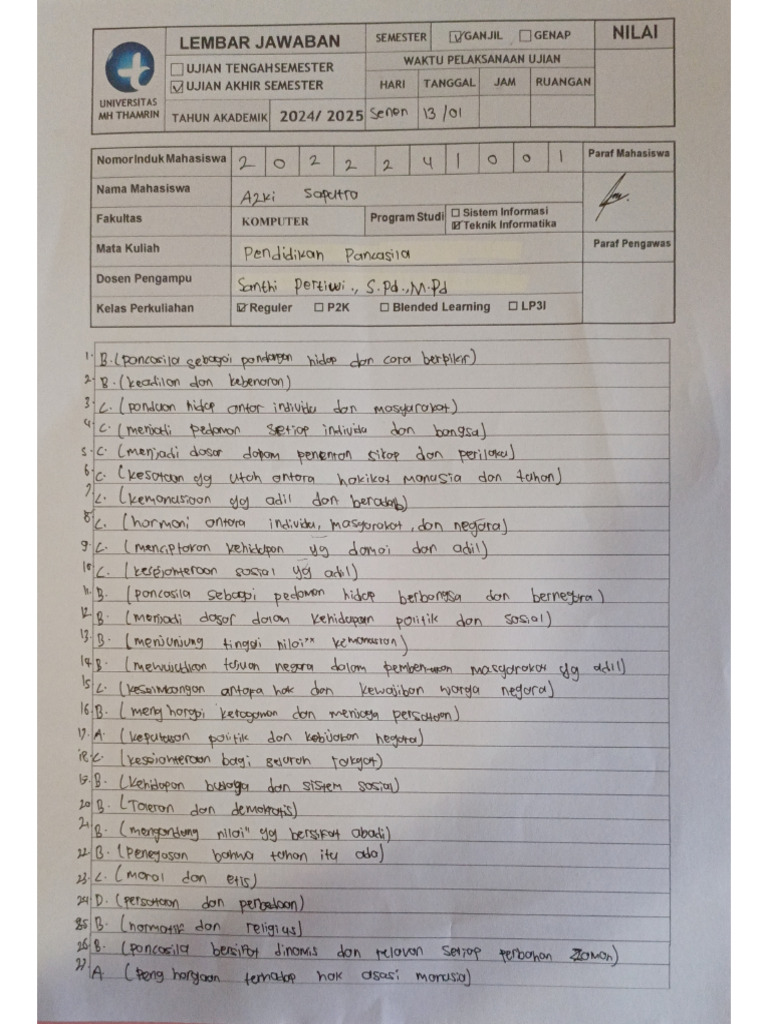 LEMBAR JAWABAN
SEMESTER ☑ GANJIL ☐ GENAP
NILAI
☐ UJIAN TENGAH SEMESTER
☑ UJIAN AKHIR SEMESTER
WAKTU PELAKSANAAN UJIAN
HARI TANGGAL JAM RUANGAN
UNIVERSITAS
MH THAMRIN
TAHUN AKADEMIK 2024/ 2025 Senen 13/01
Nomor Induk Mahasiswa 2 0 2 2 2 4 1 0 0 1 Paraf Mahasiswa
Nama Mahasiswa Azki Saputro
Fakultas KOMPUTER Program Studi ☐ Sistem Informasi
☑ Teknik Informatika
Mata Kuliah Pendidikan Pancasila Paraf Pengawas
Dosen Pengampu Santhi Pertiwi., S.Pd.,M.Pd
Kelas Perkuliahan ☑ Reguler ☐ P2K ☐ Blended Learning ☐ LP3I
1. B. (pancasila sebagai pandangan hidup dan cara berpikir)
2. B. (keadilan dan kebenaran)
3. C. (panduan hidup antar individu dan masyarakat)
4. C. (menjadi pedoman setiap individu dan bangsa)
5. C. (menjadi dasar dalam penentan sikap dan perilaku)
6. C. (kesataan yg utuh antara hakikat manusia dan tuhan)
7. C. (kemanusiaan yg adil dan beradab)
8. C. (harmoni antara individu, masyarakat, dan negara)
9. C. (menciptakan kehidupan yg damai dan adil)
10. C. (kesejahteraan sosial yg adil)
11. B. (pancasila sebagai pedoman hidup berbangsa dan bernegara)
12. B. (menjadi dasar dalam kehidupan politik dan sosial)
13. B. (menjunjung tinggi nilai" kemanusian)
14. B. (mewujudkan tujuan negara dalam masyarakat yg adil)
15. C. (keseimbangan antara hak dan kewajiban warga negara)
16. B. (menghargai keragaman dan menjaga persatuan)
17. A. (keputusan politik dan kebijakan negara)
18. C. (kesejahteraan bagi seluruh rakyat)
19. B. (kehidupan budaya dan sistem sosial)
20. B. (Toleran dan demokratis)
21. B. (mengandung nilai" yg bersifat abadi)
22. B. (penegasan bahwa tuhan itu ada)
23. C. (moral dan etis)
24. D. (persatuan dan perbedaan)
25. B. (normatik dan religius)
26. B. (pancasila bersifat dinamis dan relavan setiap perbahan zaman)
27. A. (penghargaan terhadap hak asasi manusia)